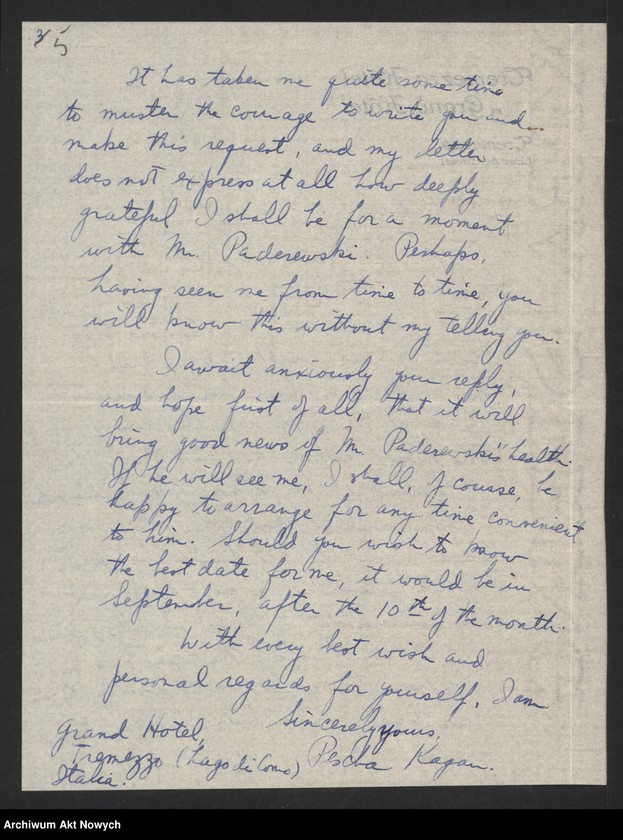 3/5
It has taken me quite some time
to muster the courage to write you and
make this request, and my letter
does not express at all how deeply
grateful I shall be for a moment
with Mr. Paderewski. Perhaps,
having seen me from time to time, you
will know this without my telling you.
I await anxiously your reply,
and hope first of all, that it will
bring good news of Mr. Paderewski's health.
If he will see me, I shall, of course, be
happy to arrange for any time convenient
to him. Should you wish to know
the best date for me, it would be in
September, after the 10th of the month.
With every best wish and
personal regards for yourself, I am
Sincerely yours,
Pescha Kagan.
Grand Hotel,
Tremezzo (Lago di Como)
Italia.
Archiwum Akt Nowych